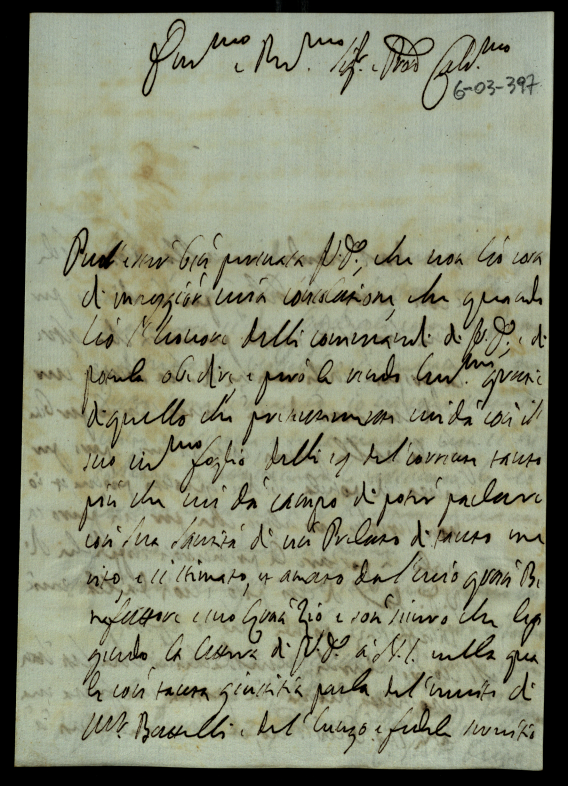 Em.mo e Rev.mo Sig.r e Pron Col.mo
6-03-397
Può esser già persuasa V.S., che non hò cosa
di maggior mia consolazione, che quando
hò l'honore delli commandi di V.S., e di
poterla obedire e però le rendo hum.me grazie
di quello che mi dà con il
suo foglio delli 19 del corrente tanto
più che mi dà campo di poter parlare
con Sua Santità di un Prelato di tanto me
rito, e sì stimato, et amato dal mio gran Be
nefattore e suo gran Zio e son sicuro che leg
gendo la lettera di V.S. à N.S. nella qua
le con tanta giustitia parla del merito di
Mr. e del lungo e fedele servitio